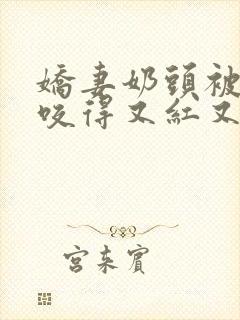 嬌妻奶頭被
咬得又紅又
宮來賓